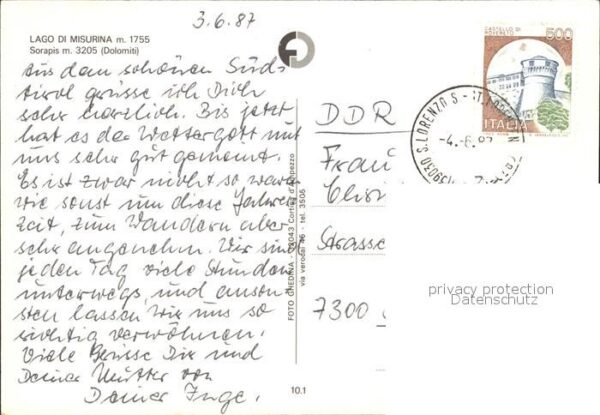 3.6.87
LAGO DI MISURINA m. 1755
Sorapis m. 3205 (Dolomiti)
Aus dem schönen Süd-
tirol grüsse ich Dich
sehr herzlich. Bis jetzt
hat es der Wettergott mit
uns sehr gut gemeint.
Es ist zwar nicht so warm
wie sonst um diese Jahres
zeit, zum Wandern aber
sehr angenehm. Wir sind
jeden Tag viele Stunden
unterwegs, und anson-
sten lassen wir uns so
richtig verwöhnen.
Viele Grüsse Dir und
Deiner Mutter von
Deiner Inge.
FOTO GHEDINA - 32043 Cortina d'Ampezzo
via verocai 46 - tel. 3505
10.1
CASTELLO DI
ROVERETO
500
ITALIA
39030 S. LORENZO S.
-4.-6.87
DDR
Frau
Strasse
7300
privacy protection
Datenschutz